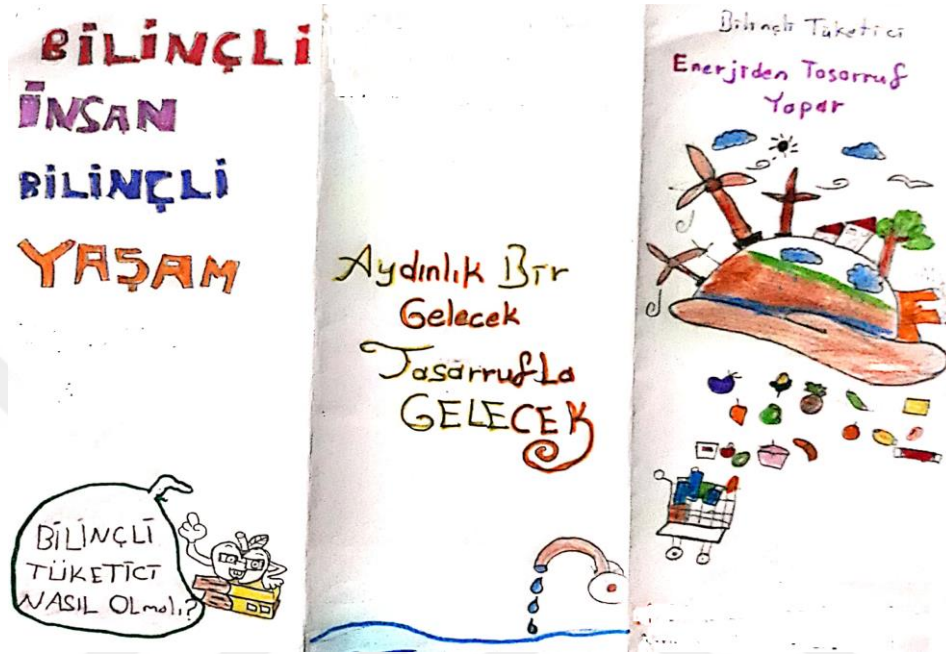 BİLİNÇLİ
İNSAN
BİLİNÇLİ
YAŞAM
BİLİNÇLİ
TÜKETİCİ
NASIL OLmalı?
Aydınlık Bir
Gelecek
Tasarrufla
GELECEK
Bilinçli Tüketici
Enerjiden Tasarruf
Yapar